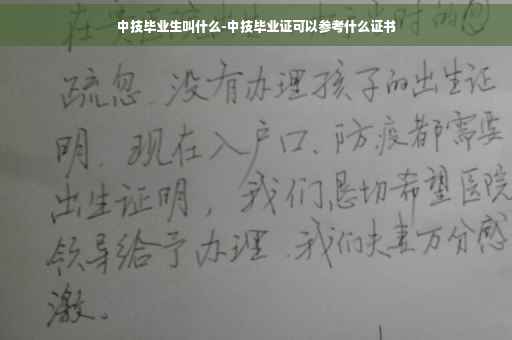 中技毕业生叫什么-中技毕业证可以参考什么证书
疏忽、没有办理孩子的出生证
明、现在入户口、防疫都需要
出生证明，我们恳切希望医院
领导给予办理、我们夫妻万分感
激。